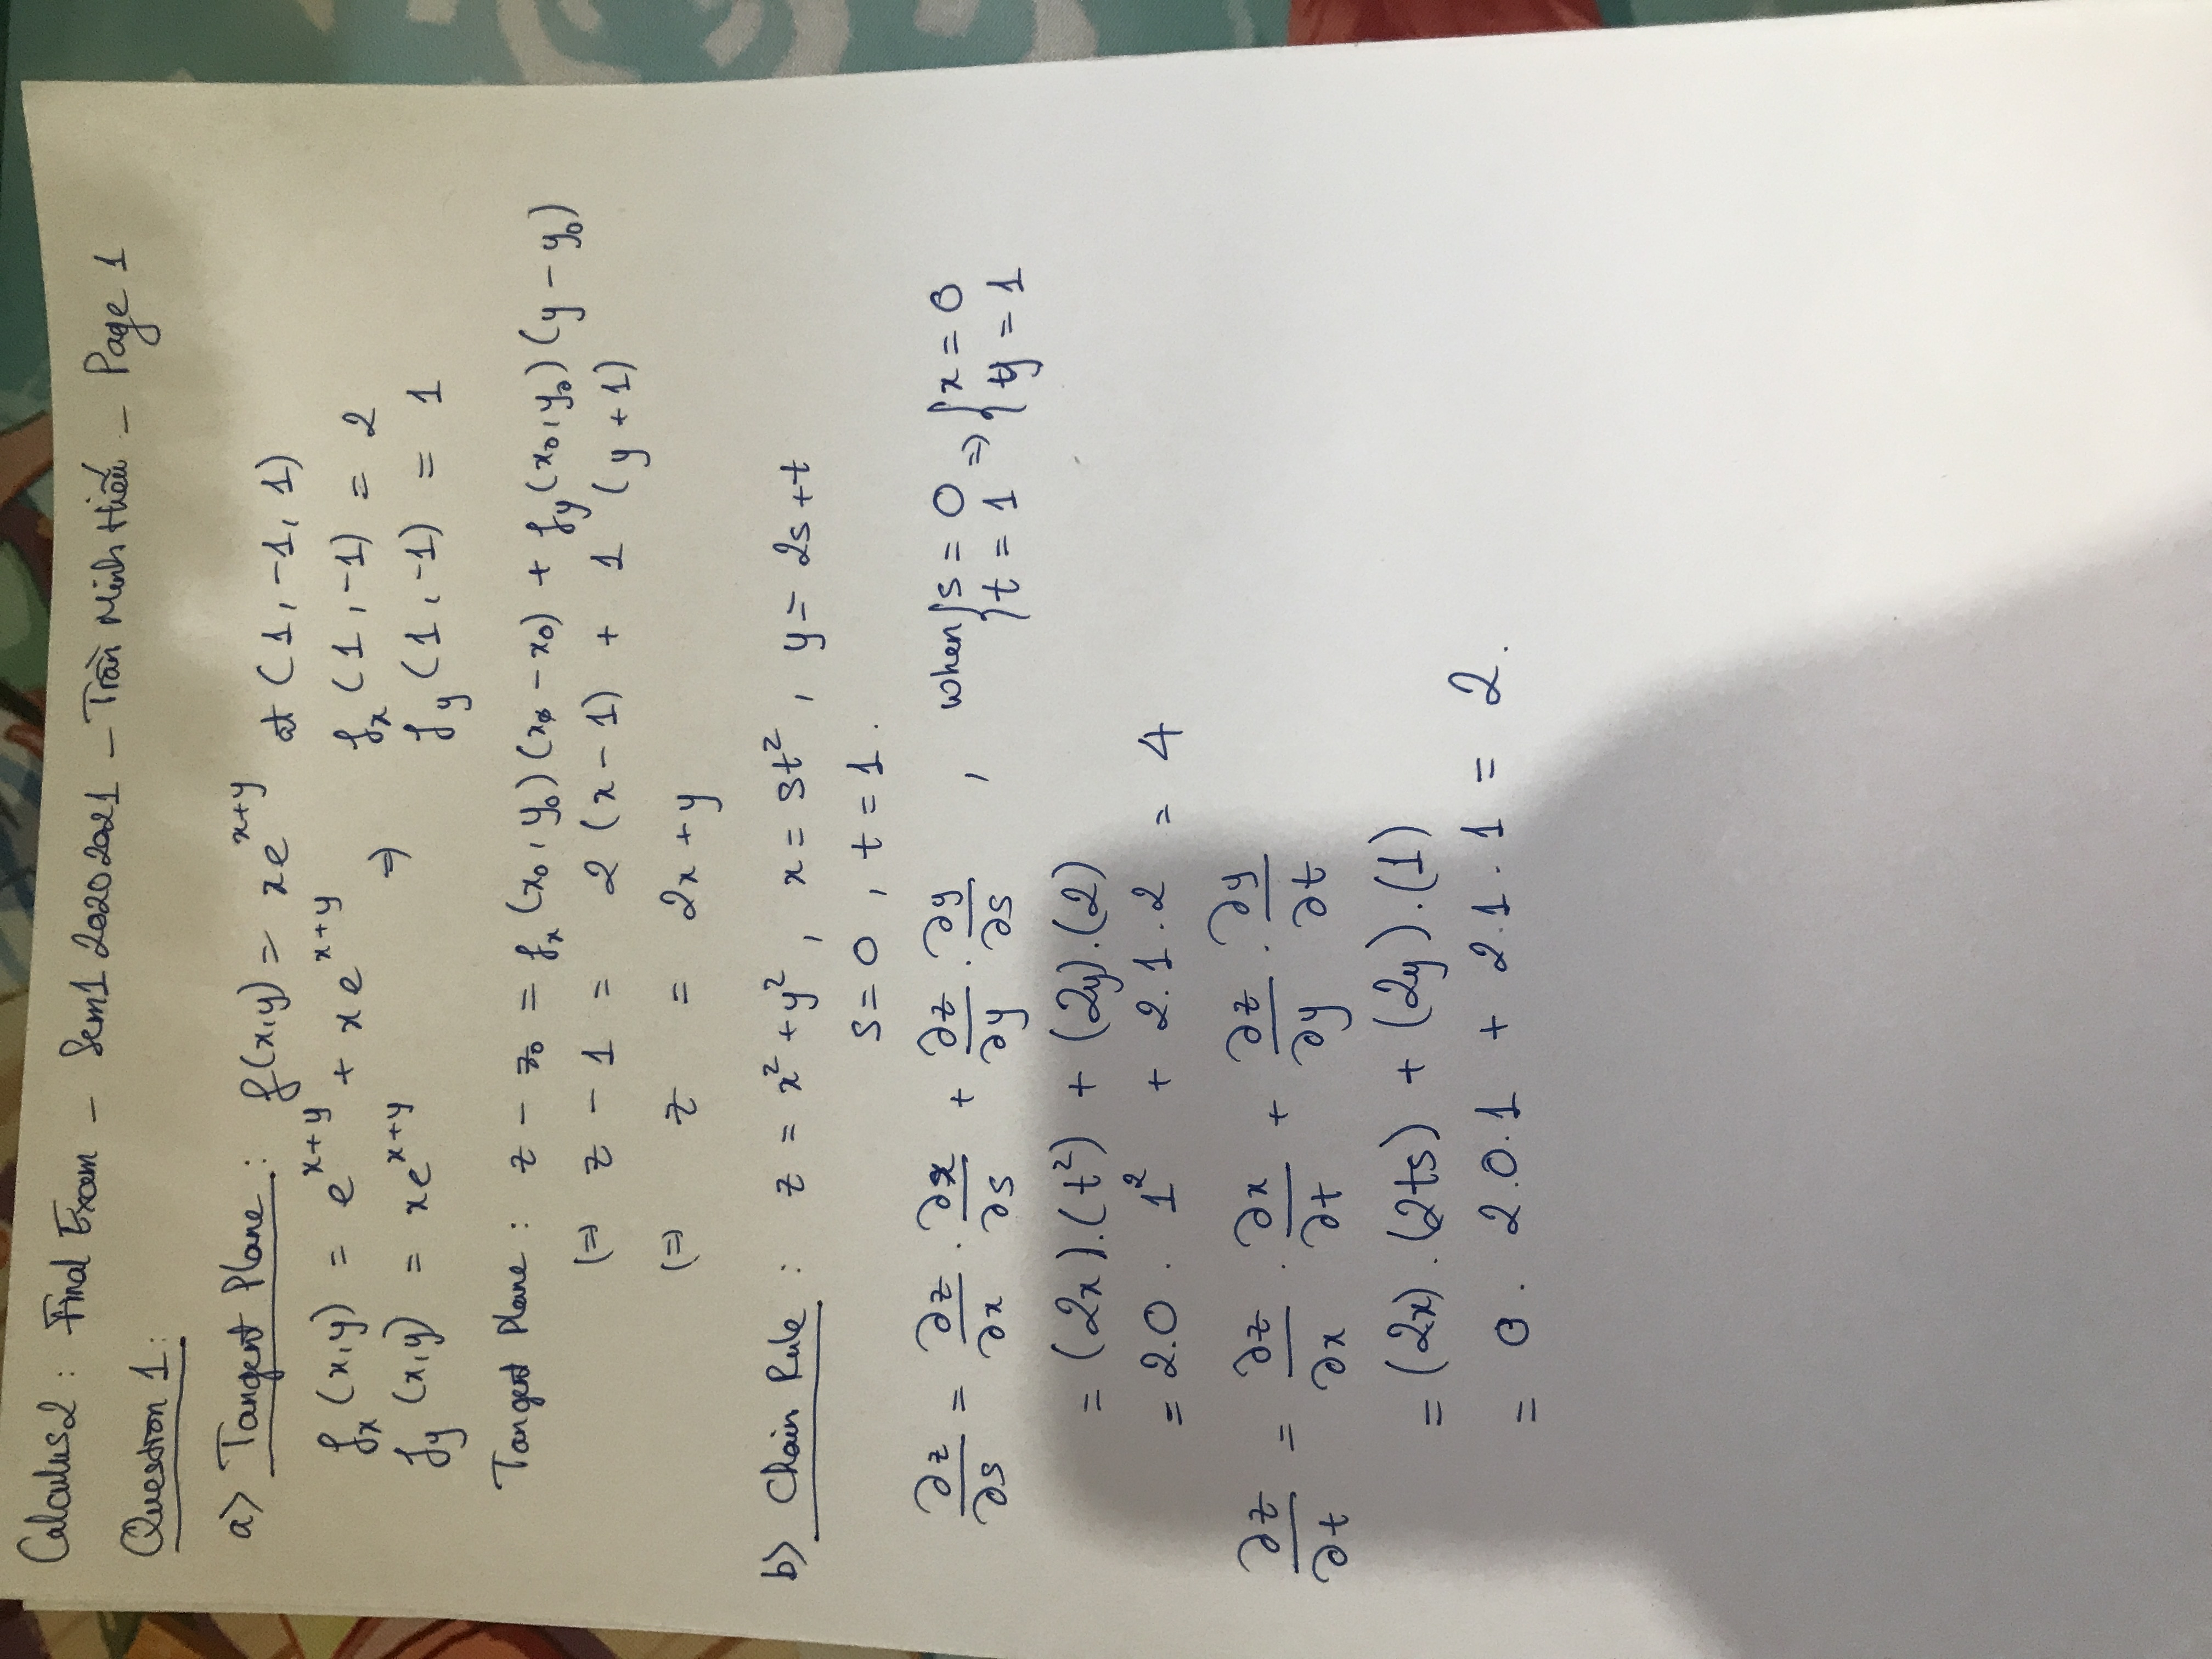 Calculus2 : Final Exam – Sem1 20202021 – Trần Minh Hiếu – Page 1
Question 1:
a) Tangent Plane : f(x,y) = xe^{x+y} at (1, -1, 1)
f_x (x,y) = e^{x+y} + xe^{x+y} ⇒ f_x (1, -1) = 2
f_y (x,y) = xe^{x+y} f_y (1, -1) = 1
Tangent Plane : z - z_0 = f_x (x_0, y_0)(x - x_0) + f_y (x_0, y_0)(y - y_0)
(⇒ z - 1 = 2 (x - 1) + 1 (y + 1)
(⇒ z = 2x + y
b) Chain Rule : z = x² + y², x = st², y = 2s + t
s = 0, t = 1.
∂z/∂s = ∂z/∂x . ∂x/∂s + ∂z/∂y . ∂y/∂s , when { s = 0 t = 1 ⇒ { x = 0 y = 1
= (2x).(t²) + (2y).(2)
= 2.0 . 1² + 2.1.2 = 4
∂z/∂t = ∂z/∂x . ∂x/∂t + ∂z/∂y . ∂y/∂t
= (2x).(2ts) + (2y).(1)
= 0. 2.0.1 + 2.1.1 = 2.